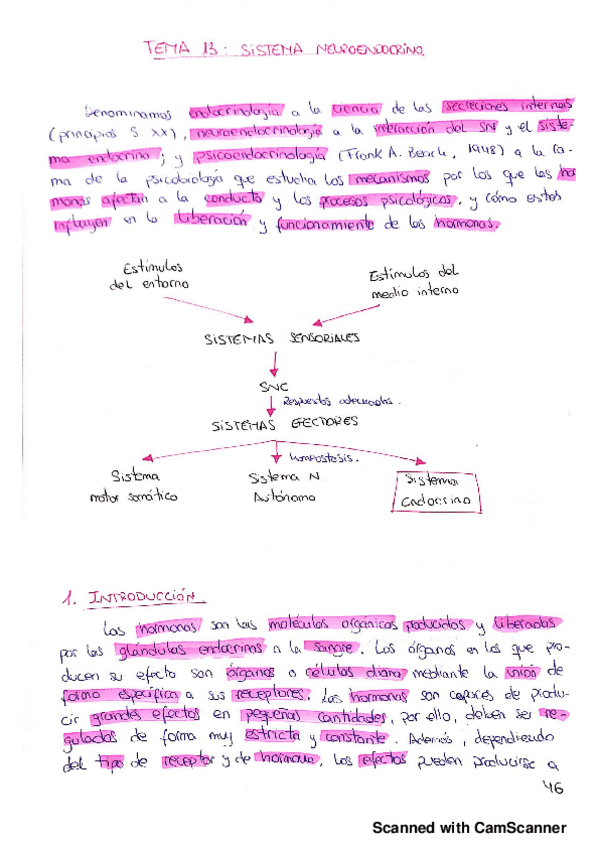 TEMA 13: SISTEMA NEUROENDOCRINO.
Denominamos endocrinología a la ciencia de las secreciones internas
(principios S XX), neuroendocrinología a la interacción del SN y el siste-
ma endocrino; y psicoendocrinología (Frank A. Beach, 1948) a la ra-
ma de la psicobiología que estudia los mecanismos por los que las ho
monas afectan a la conducta y los procesos psicológicos, y cómo estos
influyen en la liberación y funcionamiento de las hormonas.
Estímulos
del entorno
Estímulos del
medio interno
SISTEMAS SENSORIALES
SNC
Respuestas adecuadas.
SISTEMAS EFECTORES
homeostasis.
Sistema
motor somático
Sistema N.
Autónomo
Sistema
Endocrino
1. INTRODUCCIÓN
Las hormonas son las moléculas orgánicas producidas y liberadas
por las glándulas endocrinas a la sangre. Los órganos en los que pro-
ducen su efecto son órganos o células diana mediante la unión de
forma específica a sus receptores. Las hormonas son capaces de produ-
cir grandes efectos en pequeñas cantidades, por ello, deben ser re-
guladas de forma muy estricta y constante. Además, dependiendo
del tipo de receptor y de hormona, los efectos pueden producirse a
46
Scanned with CamScanner